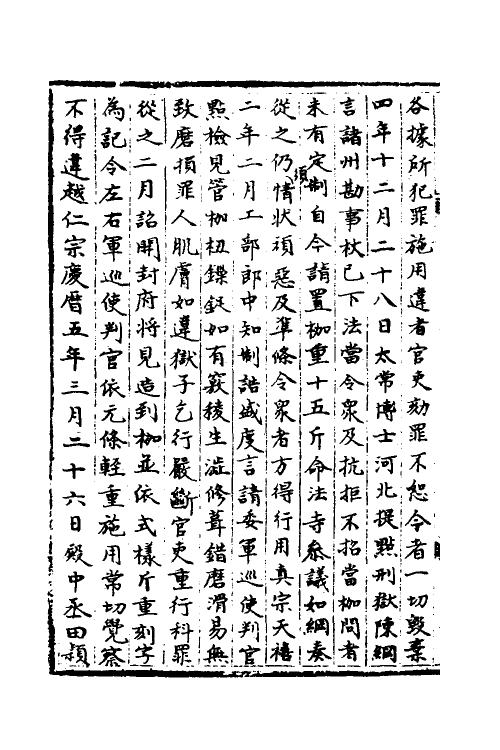 各據所犯罪施用違者官吏劾罪不恕今者一切毀棄
四年十二月二十八日太常博士河北提㸃刑獄陳綱
言諸州勘事杖已下法當令衆及抗拒不招當枷問者
未有定制自今請置枷重十五斤命法寺叅議如綱奏
從之仍須情狀頑惡及準條令衆者方得行用真宗天禧
二年二月工部郎中知制誥盛度言請委軍巡使判官
㸃檢見管枷杻鏁釱如有竅稜生澁修葺錯磨滑易無
致磨損罪人肌膚如違獄子乞行嚴斷官吏重行科罪
從之二月詔開封府將見造到枷並依式樣斤重刻字
為記令左右軍巡使判官依元條輕重施用常切覺察
不得違越仁宗慶曆五年三月二十六日殿中丞田頴